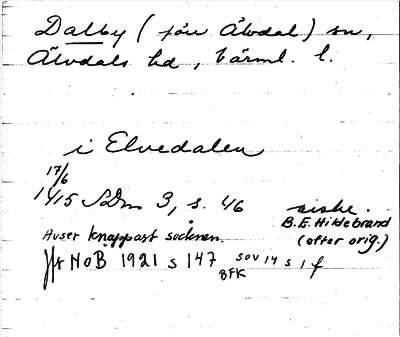 Dalby (förr Älvdal) sn,
Älvdals hd, Värml. l.
i Elvedalen
17/6
1415 SDns 3, s. 46
avskr.
B.E. Hildebrand
(efter orig.)
Avser knappast socknen.
Jfr NoB 1921 s 147 SOV 14 s 1 f
BFK